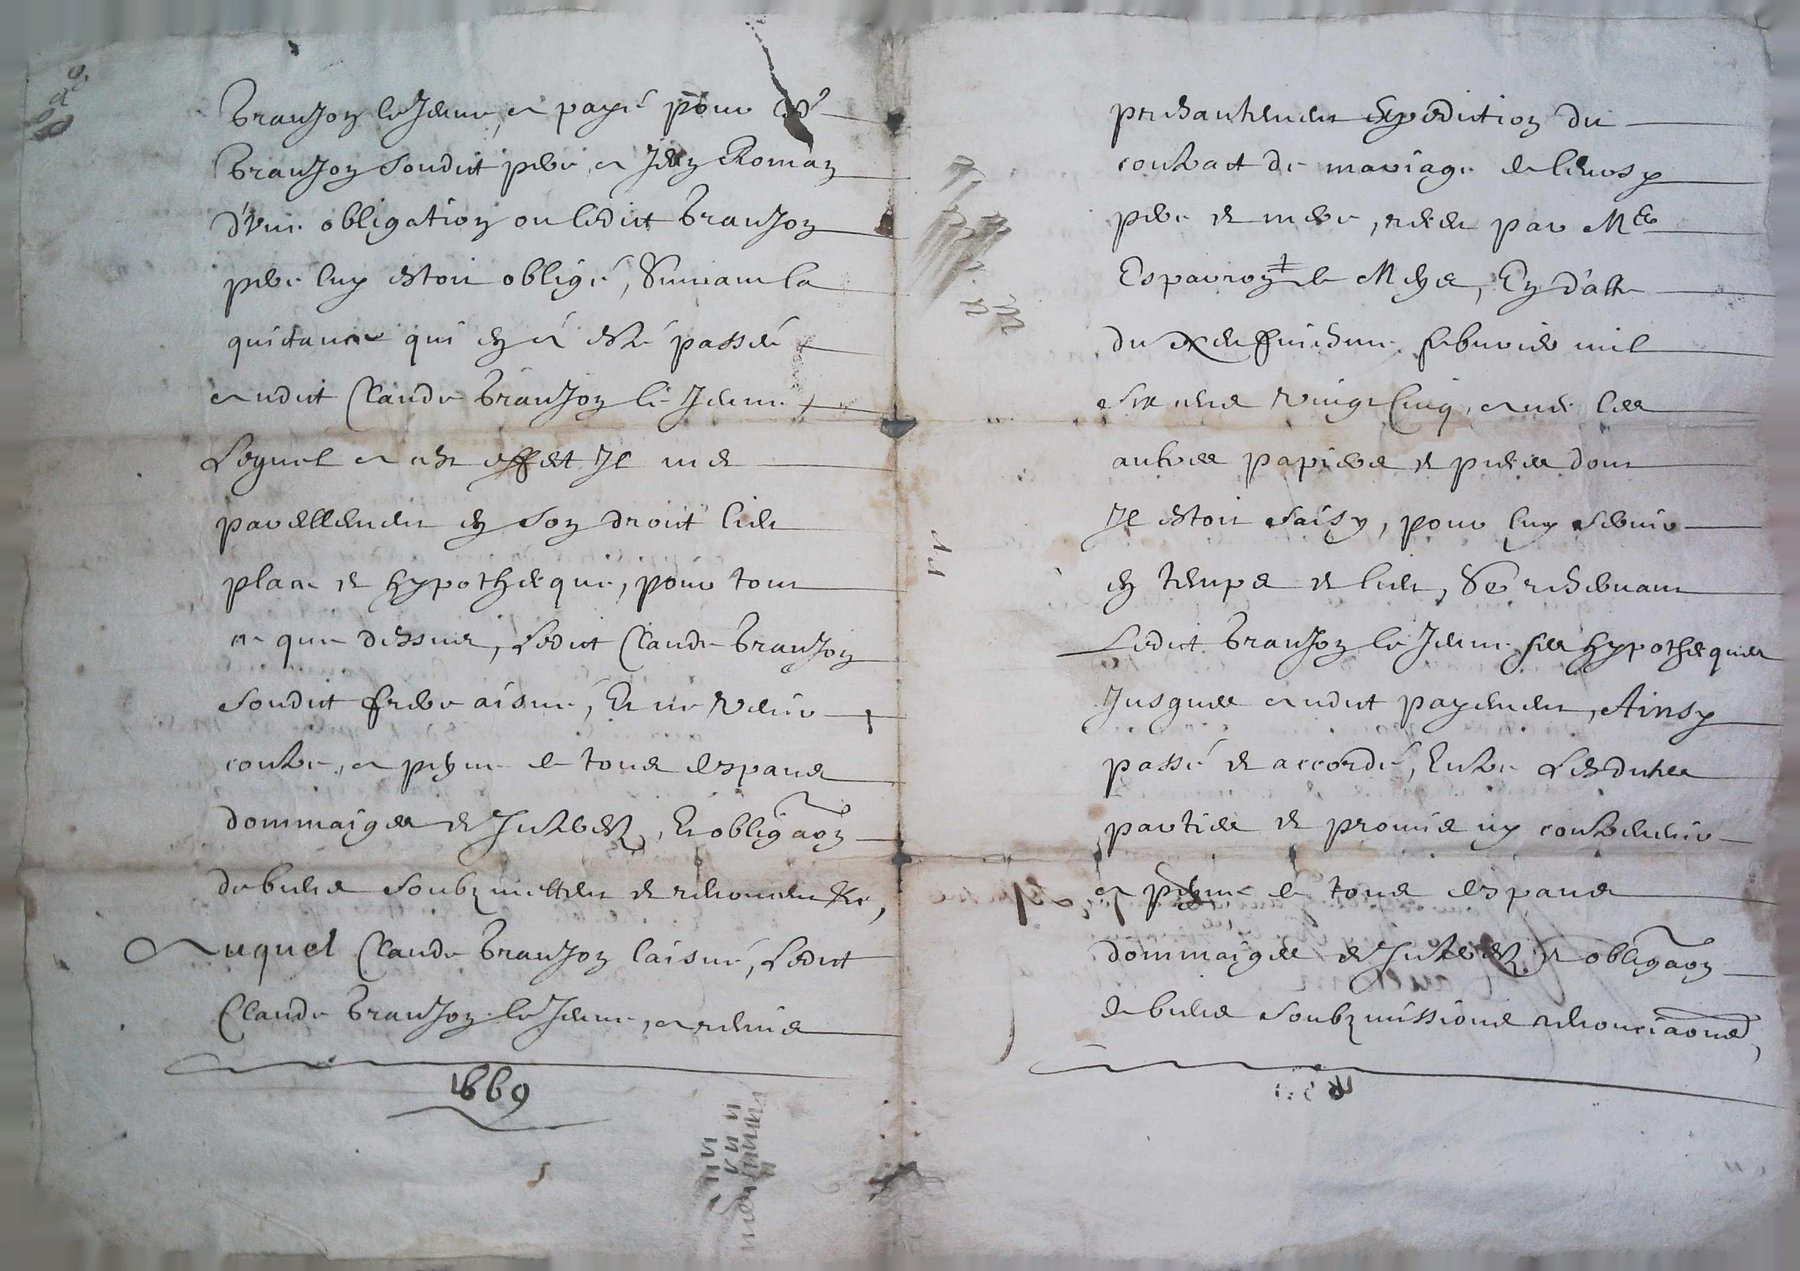 Braujon le Jeune, a payé pour led
Braujon soudict pere, a Jean Roman
d'vne obligation ou ledict Braujon
pere luy estoit obligé, Suiuant la
quictance qui en a esté passée
audict Claude Braujon le Jeune,
Lequel a cest effect Jl met
pareillement en son droict lieu
place et hypotheque, pour tout
ce que dessus, Ledict Claude Braujon
soudict frere aisné, Et ne venir
contre, a peyne de tous despans
dommaiges et Jnterestz, Et obligaon
de biens soubzmettent et renoncent &c,
Auquel Claude Braujon laisné, Ledict
Claude Braujon le Jeune, a remis
1669
presantement expedition du
contract de mariage de leurs
pere et mere, receu par Me
Esparron de Meyes, En datte
du dix huictiesme febvrier mil
six cens vingt cinq, auec les
autres papiers et pieces dont
Jl estoit saisy, pour luy seruir
en temps et lieu, Se reseruant
Ledict Braujon le Jeune ses hypotheques
Jusques audict payement, Ainsy
passé et accordé, Entre Lesdictes
parties et promis ny contreuenir
a peyne de tous despans
dommaiges et Jnterestz et obligaon
de biens soubzmissions renonciaons,